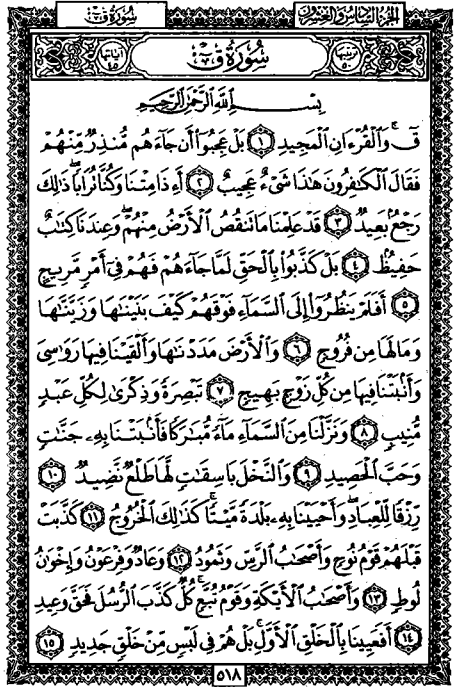 سُورَةُ ق
الجزء السادس والعشرون
ترتيبها ٥٠
سُورَةُ ق
آياتها ٤٥
بِسْمِ اللَّهِ الرَّحْمَٰنِ الرَّحِيمِ
قٓ ۚ وَالْقُرْءَانِ الْمَجِيدِ ١ بَلْ عَجِبُوٓا أَن جَآءَهُم مُّنذِرٌ مِّنْهُمْ
فَقَالَ الْكَٰفِرُونَ هَٰذَا شَىْءٌ عَجِيبٌ ٢ أَءِذَا مِتْنَا وَكُنَّا تُرَابًا ۖ ذَٰلِكَ
رَجْعٌۢ بَعِيدٌ ٣ قَدْ عَلِمْنَا مَا تَنقُصُ الْأَرْضُ مِنْهُمْ ۖ وَعِندَنَا كِتَٰبٌ
حَفِيظٌۢ ٤ بَلْ كَذَّبُوا بِالْحَقِّ لَمَّا جَآءَهُمْ فَهُمْ فِىٓ أَمْرٍ مَّرِيجٍ
٥ أَفَلَمْ يَنظُرُوٓا إِلَى السَّمَآءِ فَوْقَهُمْ كَيْفَ بَنَيْنَٰهَا وَزَيَّنَّٰهَا
وَمَا لَهَا مِن فُرُوجٍ ٦ وَالْأَرْضَ مَدَدْنَٰهَا وَأَلْقَيْنَا فِيهَا رَوَٰسِىَ
وَأَنۢبَتْنَا فِيهَا مِن كُلِّ زَوْجٍۭ بَهِيجٍ ٧ تَبْصِرَةً وَذِكْرَىٰ لِكُلِّ عَبْدٍ
مُّنِيبٍ ٨ وَنَزَّلْنَا مِنَ السَّمَآءِ مَآءً مُّبَٰرَكًا فَأَنۢبَتْنَا بِهِۦ جَنَّٰتٍ
وَحَبَّ الْحَصِيدِ ٩ وَالنَّخْلَ بَاسِقَٰتٍ لَّهَا طَلْعٌ نَّضِيدٌ ١٠
رِّزْقًا لِّلْعِبَادِ ۖ وَأَحْيَيْنَا بِهِۦ بَلْدَةً مَّيْتًا ۚ كَذَٰلِكَ الْخُرُوجُ ١١ كَذَّبَتْ
قَبْلَهُمْ قَوْمُ نُوحٍ وَأَصْحَٰبُ الرَّسِّ وَثَمُودُ ١٢ وَعَادٌ وَفِرْعَوْنُ وَإِخْوَٰنُ
لُوطٍ ١٣ وَأَصْحَٰبُ الْأَيْكَةِ وَقَوْمُ تُبَّعٍ ۚ كُلٌّ كَذَّبَ الرُّسُلَ فَحَقَّ وَعِيدِ
١٤ أَفَعَيِينَا بِالْخَلْقِ الْأَوَّلِ ۚ بَلْ هُمْ فِى لَبْسٍ مِّنْ خَلْقٍ جَدِيدٍ ١٥
٥١٨